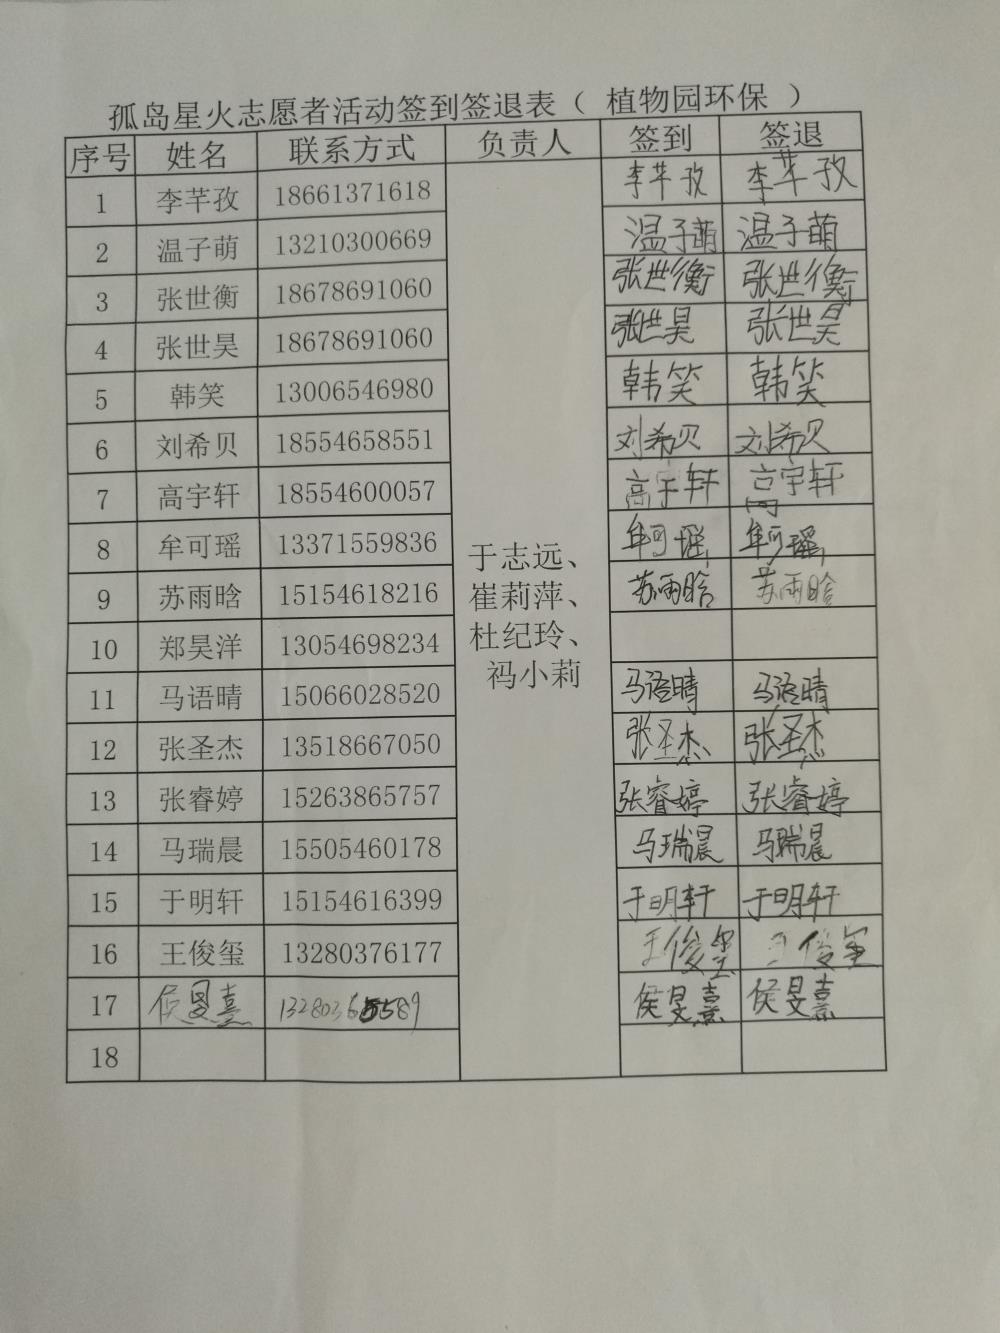 孤岛星火志愿者活动签到签退表（ 植物园环保 ）
序号 姓名 联系方式 负责人 签到 签退
1 李芊孜 18661371618 李芊孜 李芊孜
2 温子萌 13210300669 温子萌 温子萌
3 张世衡 18678691060 张世衡 张世衡
4 张世昊 18678691060 张世昊 张世昊
5 韩笑 13006546980 韩笑 韩笑
6 刘希贝 18554658551 刘希贝 刘希贝
7 高宇轩 18554600057 高宇轩 高宇轩
8 牟可瑶 13371559836 牟可瑶 牟可瑶
于志远、
崔莉萍、
杜纪玲、
祃小莉
9 苏雨晗 15154618216 苏雨晗 苏雨晗
10 郑昊洋 13054698234
11 马语晴 15066028520 马语晴 马语晴
12 张圣杰 13518667050 张圣杰 张圣杰
13 张睿婷 15263865757 张睿婷 张睿婷
14 马瑞晨 15505460178 马瑞晨 马瑞晨
15 于明轩 15154616399 于明轩 于明轩
16 王俊玺 13280376177 王俊玺 王俊玺
17 侯旻熹 侯旻熹 侯旻熹
18